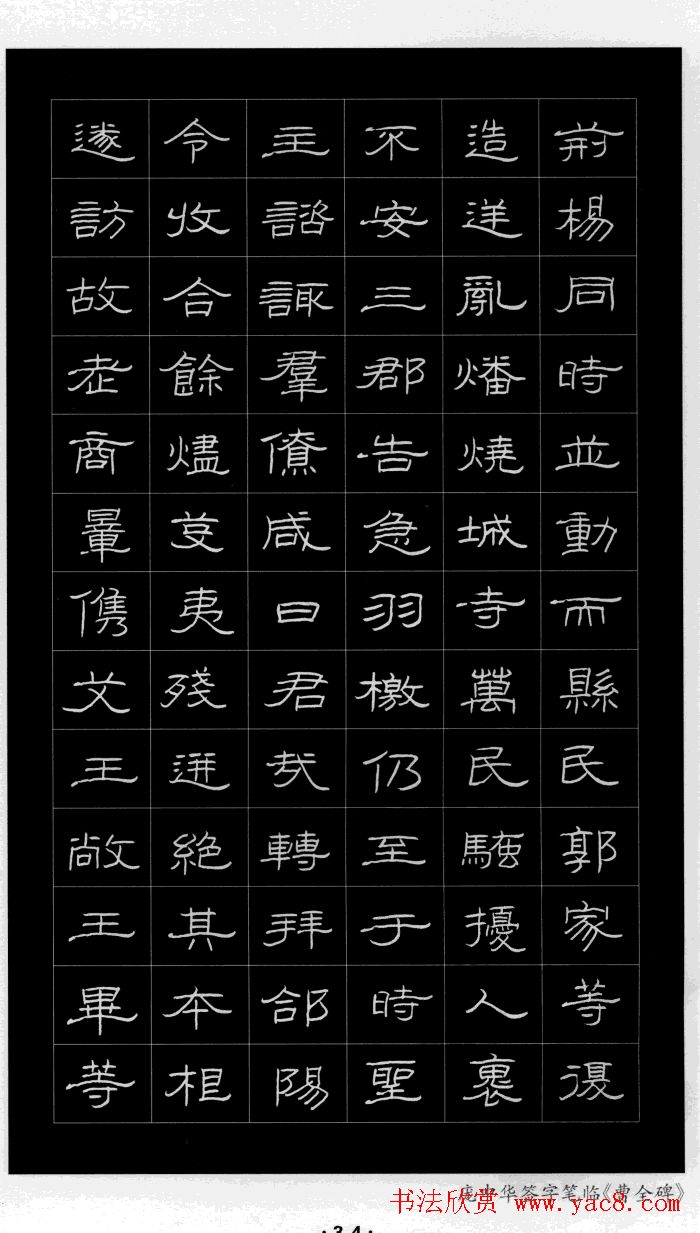 荊楊同時並動而縣民郭家等復
造逆亂燔燒城寺萬民騷擾人裏
不安三郡告急羽檄仍至于時聖
主諮諏羣僚咸曰君哉轉拜郃陽
令收合餘燼芟夷殘迸絕其本相
遂訪故老商暈儁艾王敞王畢等
庞中华签字笔临《曹全碑》
书法欣赏 www.yac8.com
·34·